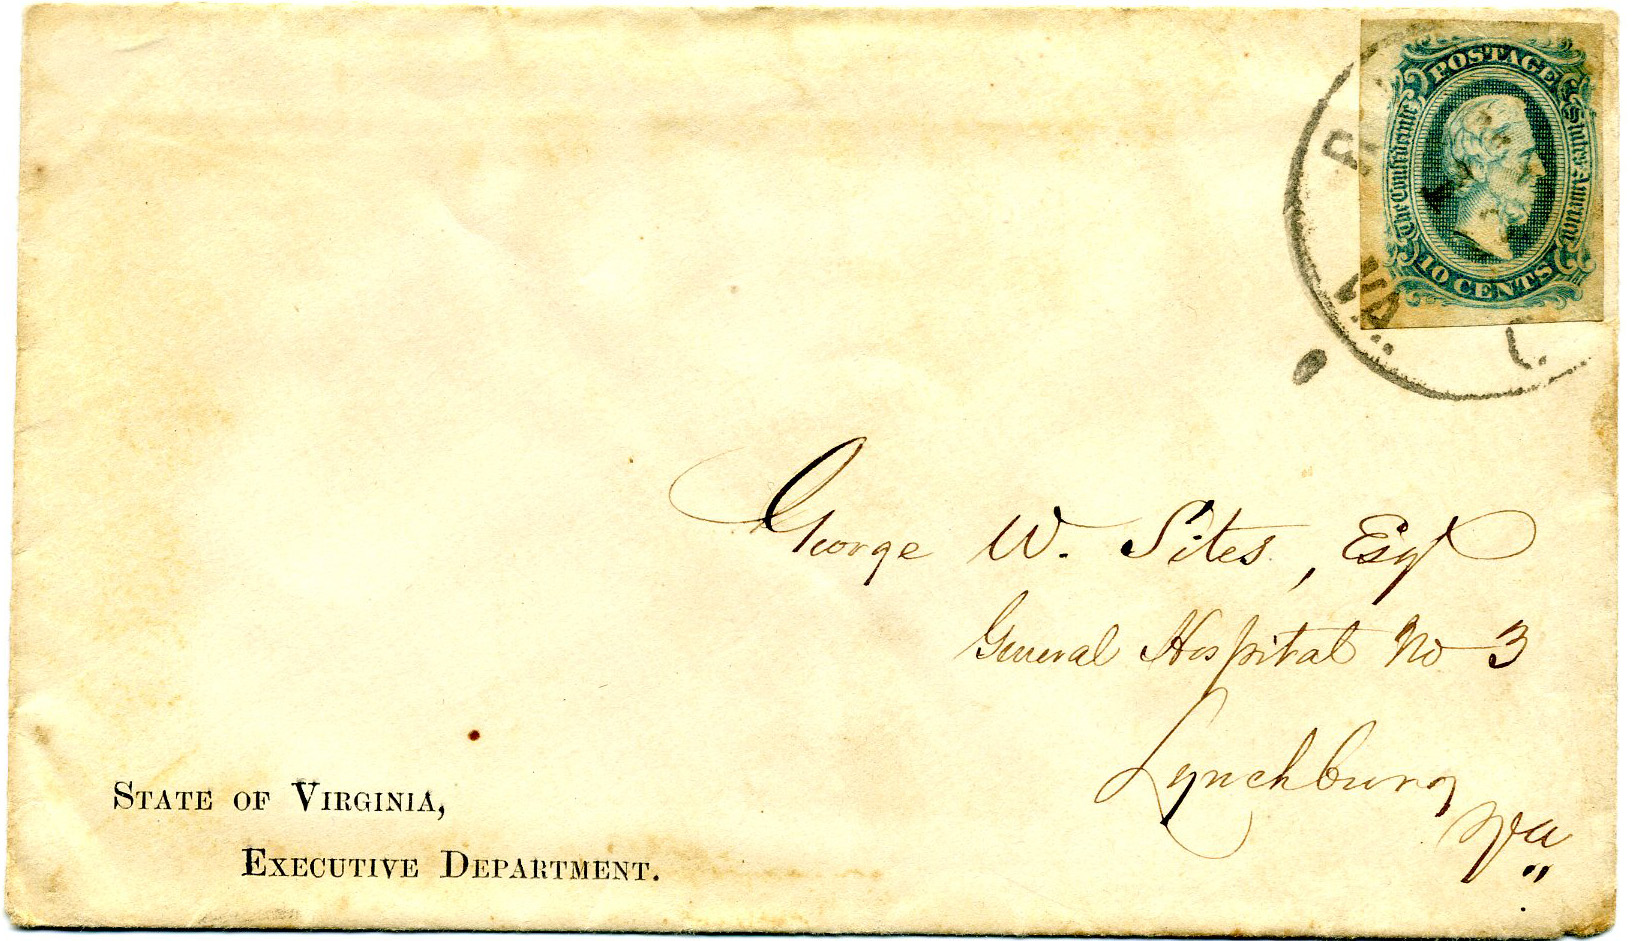 POSTAGE
The Confederate States of America
10 CENTS
VA.
George W. Sites, Esqr
General Hospital No 3
Lynchburg
Va
STATE OF VIRGINIA,
EXECUTIVE DEPARTMENT.